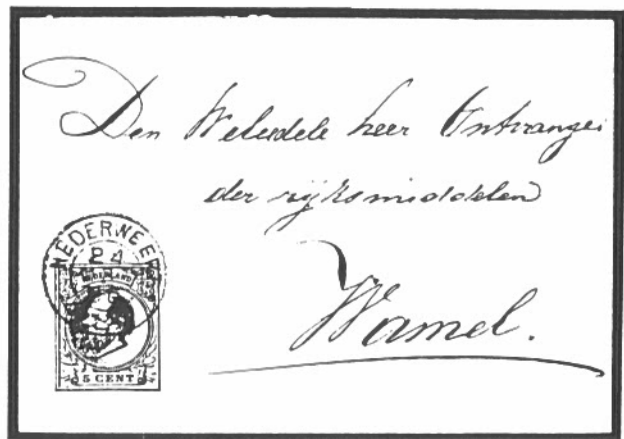 Den Weledele heer Ontvanger
der rijksmiddelen
Wamel.
NEDERWEERT
24
NEDERLAND
5 CENT